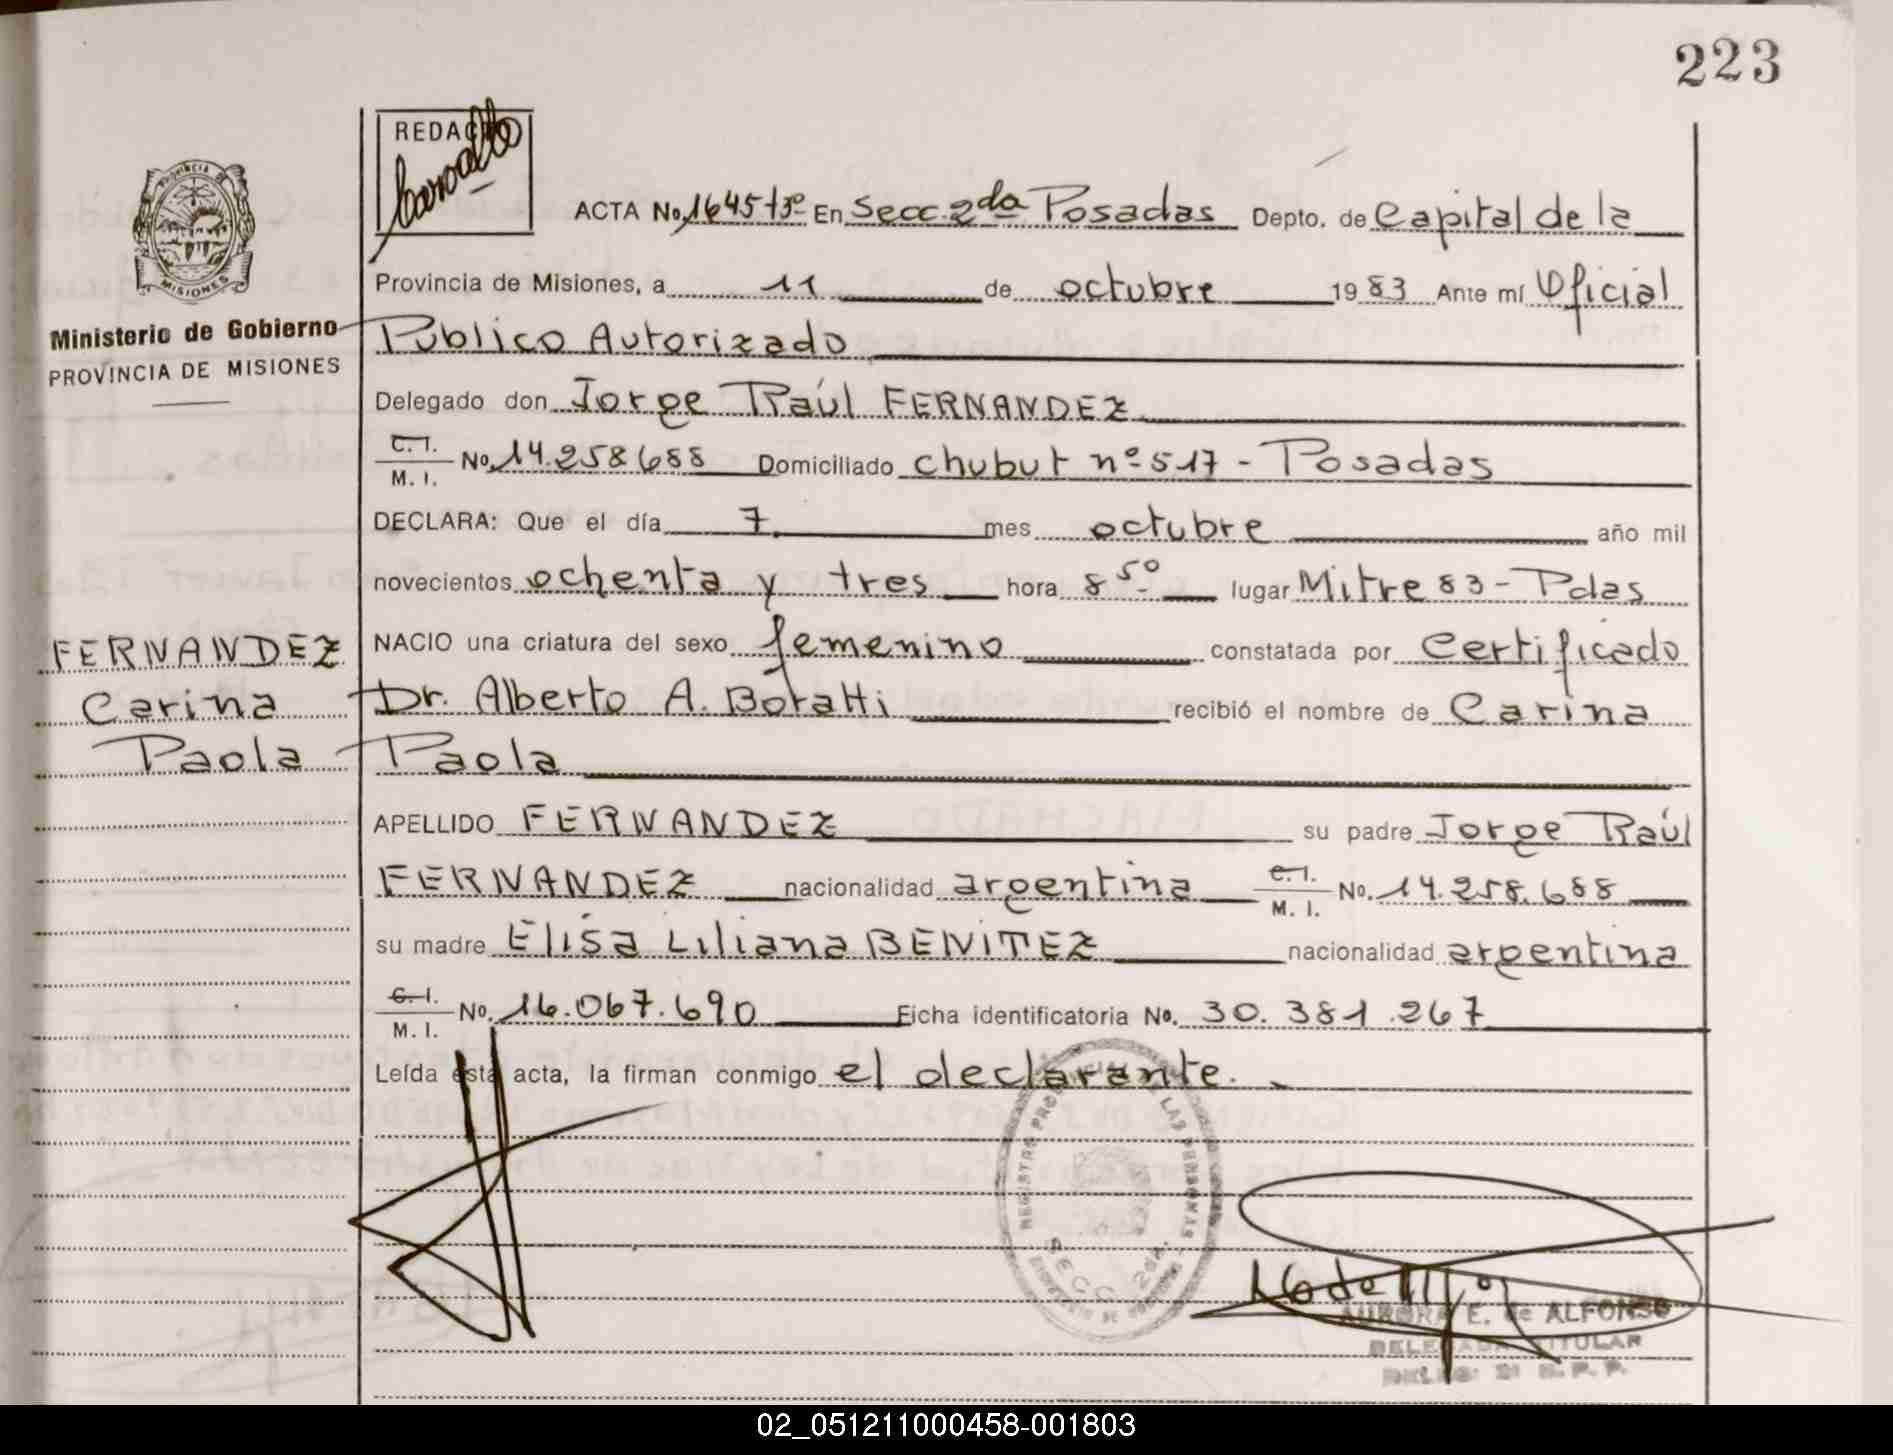 223
REDACTO
ACTA No 1645 tº3º En Secc. 2da Posadas Depto. de Capital de la
Provincia de Misiones, a 11 de octubre 1983 Ante mí Oficial
Ministerio de Gobierno
PROVINCIA DE MISIONES
MISIONES
Público Autorizado
Delegado don Jorge Raúl FERNANDEZ
C. I. M. I. No 14.258.688 Domiciliado Chubut nº 517 - Posadas
DECLARA: Que el día 7 mes octubre año mil
novecientos ochenta y tres hora 8 50 lugar Mitre 83 - Pdas
FERNANDEZ
Carina
Paola
NACIO una criatura del sexo femenino constatada por Certificado
Dr. Alberto A. Boratti recibió el nombre de Carina
Paola
APELLIDO FERNANDEZ su padre Jorge Raúl
FERNANDEZ nacionalidad argentina C. I. M. I. No. 14.258.688
su madre Elisa Liliana BENITEZ nacionalidad argentina
C. I. M. I. No. 16.067.690 Ficha identificatoria No. 30.381.267
Leída esta acta, la firman conmigo el declarante.
REGISTRO PROVINCIAL DE LAS PERSONAS
SECC. 2da.
AURORA E. de ALFONSO
DELEGADA TITULAR
02_051211000458-001803